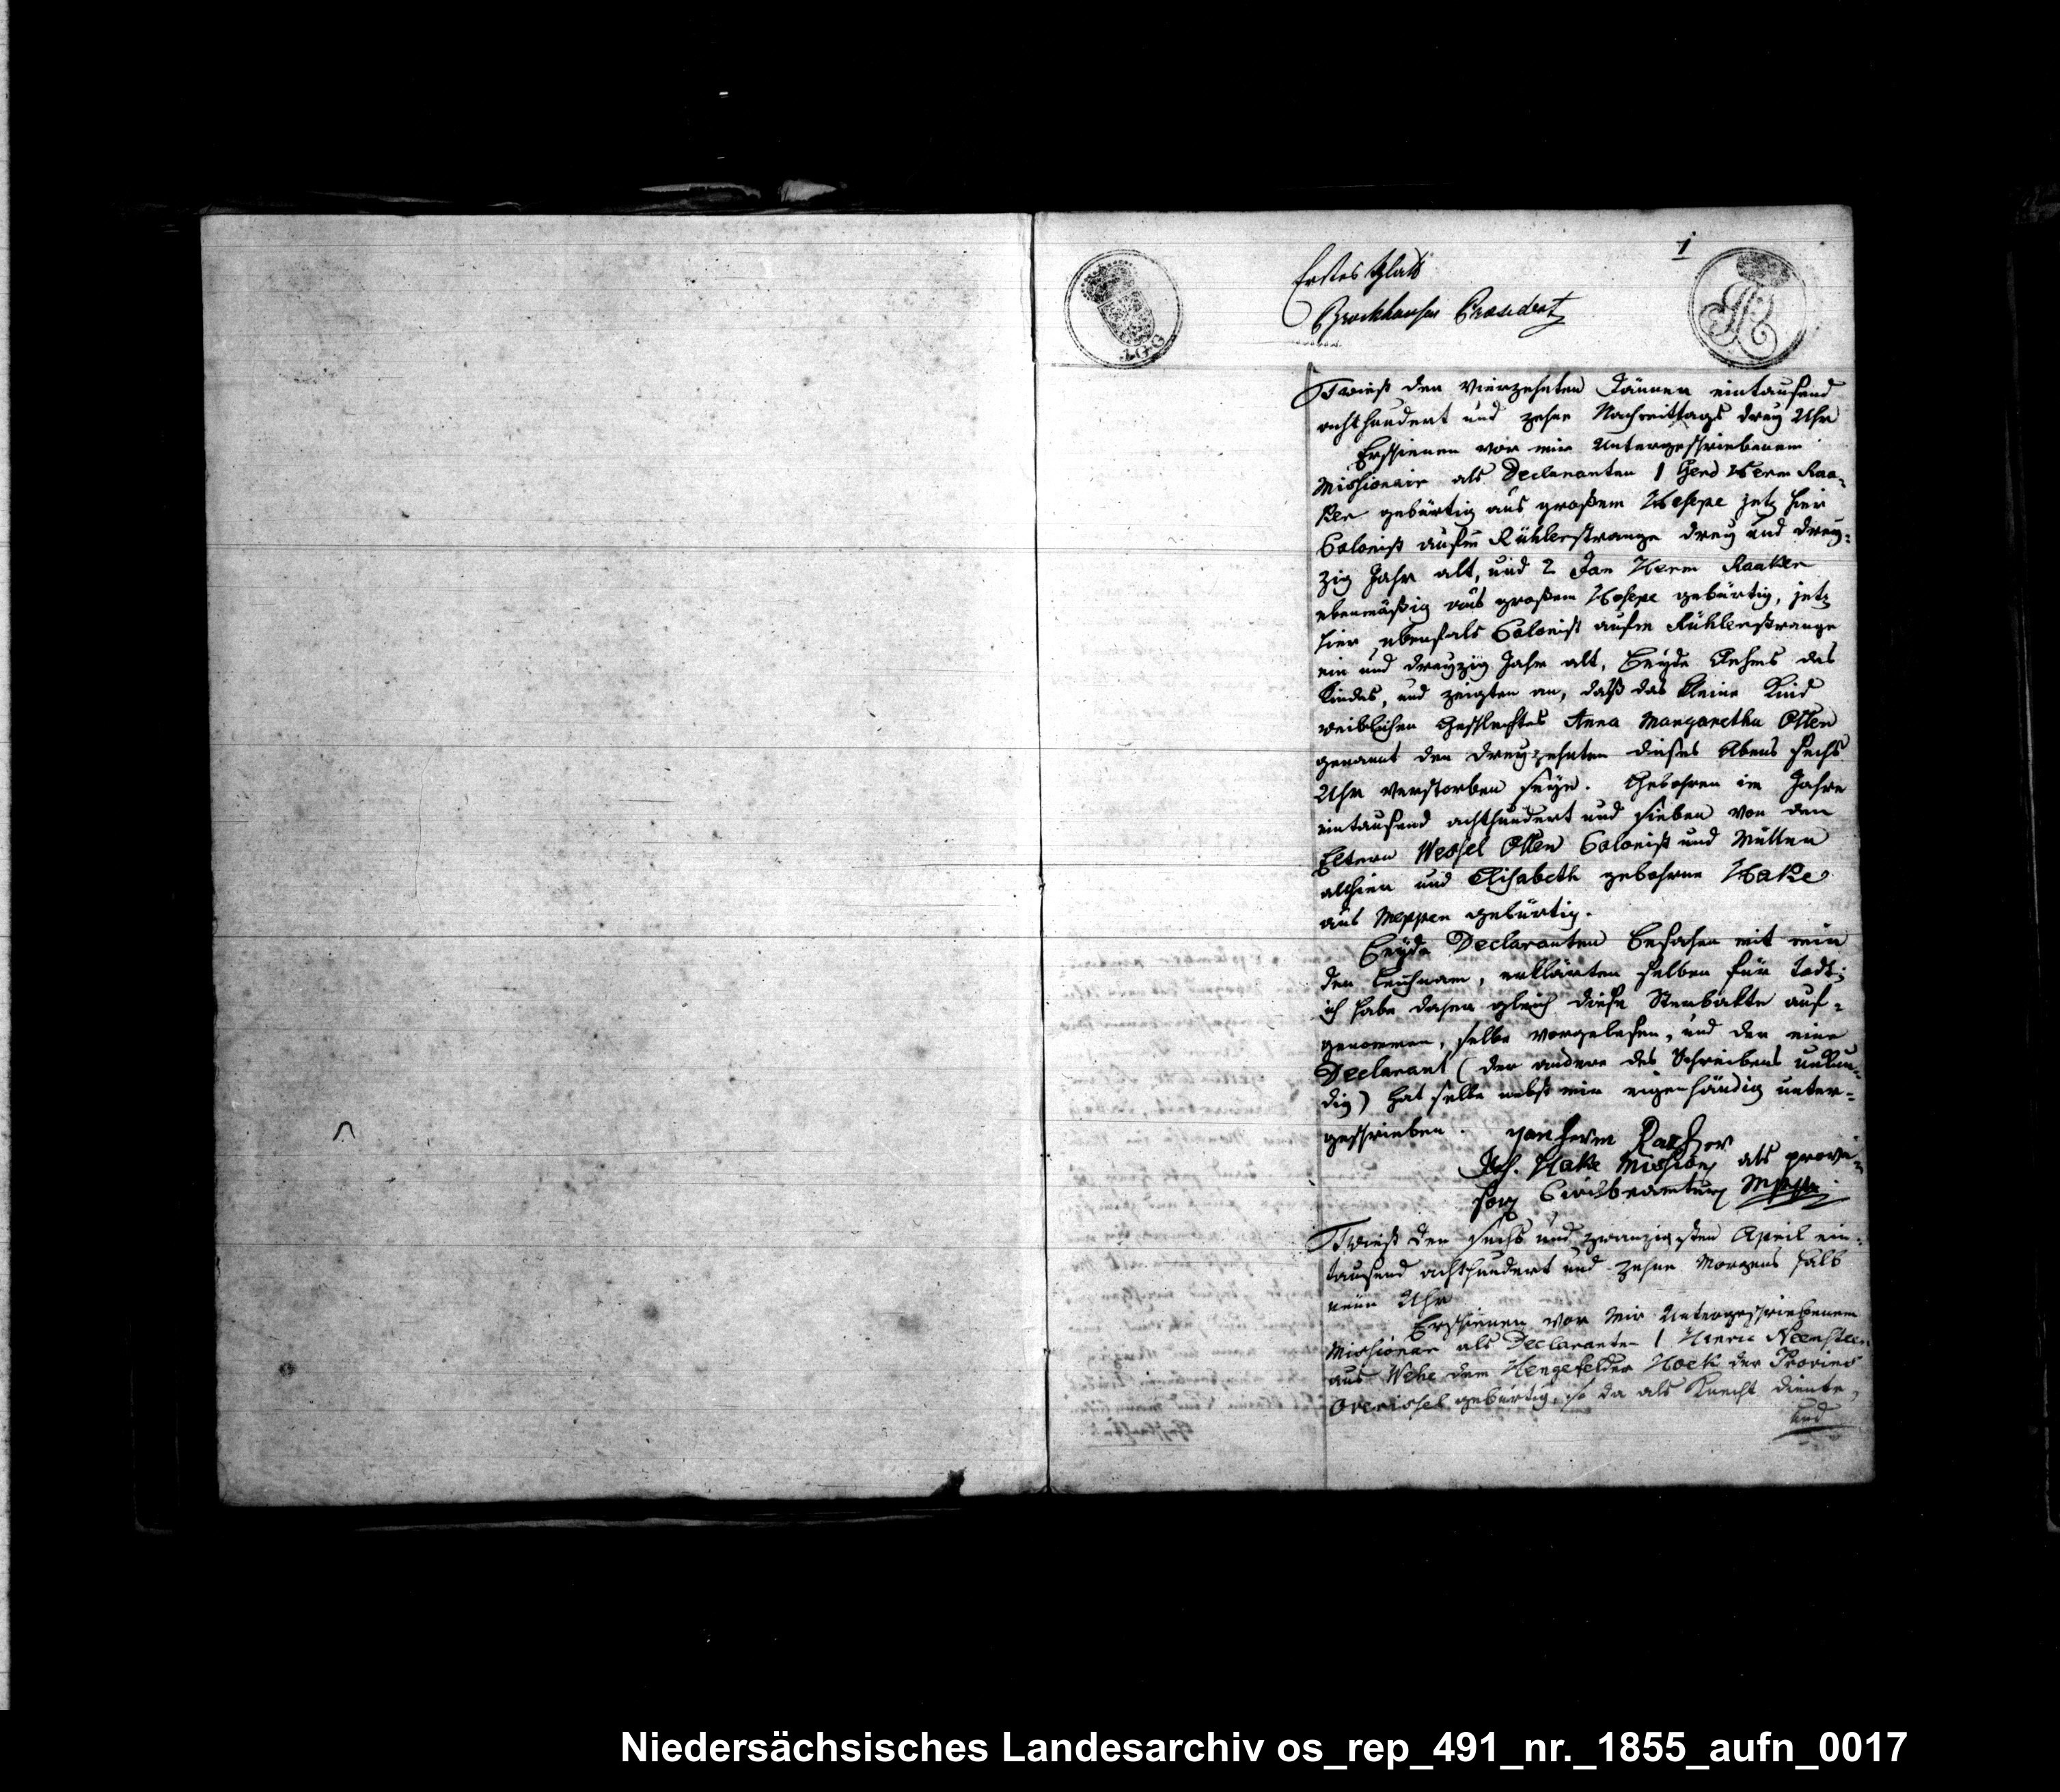 1
Erstes Blatt
Brockhausen President
100
Twist den Vierzehnten Jänner eintausend
achthundert und zehne Nachmittags drey Uhr
Erschienen vor mir Untergeschriebenem
Missionair als Declaranten 1 Gerd Herm Raa-
ker gebürtig aus großem Hesepe jetz hier
Colonist aufm Rühlerstrange drey und drey-
zig Jahr alt, und 2 Jan Herm Raaker
ebenmäßig aus großem Hesepe gebürtig, jetz
hier ebenfals Colonist aufm Rühlerstrange
ein und dreyzig Jahr alt, beyde Oehms des
Kindes, und zeigten an, daß das kleine Kind
weiblichen Geschlechtes Anna Margaretha Otten
genannt den dreyzehnten dieses Abens sechs
Uhr verstorben seye. Gebohren im Jahre
eintausend achthundert und sieben von den
Eltern Wessel Otten Colonist und Müller
allhier und Elisabeth gebohrne Hake
aus Meppen gebürtig.
Beyde Declaranten besahen mit mir
den Leichnam, erklärten selben für todt;
ich habe daher gleich diese Sterbakte auf-
genommen, selbe vorgelesen, und der eine
Declarant (der andere des Schreibens unkun-
dig) hat selbe nebst mir eigenhändig unter-
geschrieben. Jan Herm
Hake Mission als provi-
sor Civilbeamter
Twist den sechs und zwanzigsten April ein-
tausend achthundert und zehne Morgens halb
neun Uhr
Erschienen vor mir Untergeschriebenem
Missionar als Declaranten 1
aus Wehe dem Hengefelder Hoek der Provins
Overissel gebürtig, so da als Knecht diente,
und
Niedersächsisches Landesarchiv os_rep_491_nr._1855_aufn_0017